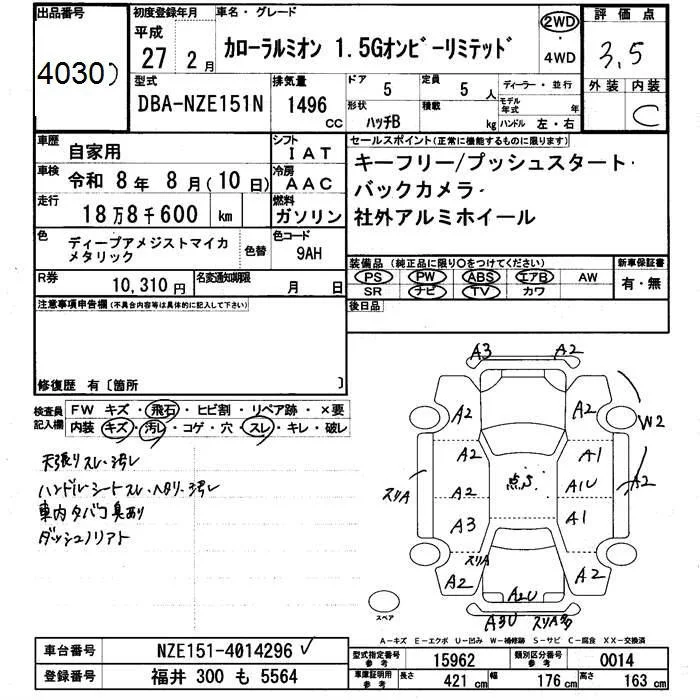 出品番号
4030)
初度登録年月
平成
27年 2月
車名・グレード
カローラルミオン 1.5Gオンビーリミテッド
2WD
・
4WD
評価点
3,5
外装 内装
C
型式
DBA-NZE151N
排気量
1496
CC
ドア
5
定員
5人
形状
ハッチB
積載
kg
ディーラー・並行
モデル年式 年
ハンドル 左・右
車歴
自家用
シフト
IAT
車検
令和 8年 8月(10日)
冷房
AAC
走行
18万8千600 km
燃料
ガソリン
色
ディープアメジストマイカ
メタリック
色替
色コード
9AH
R券
10,310円
名変通知期限
月 日
セールスポイント(正常に機能するものに限ります)
キーフリー/プッシュスタート
バックカメラ
社外アルミホイール
装備品(純正品に限り○をつけてください)
PS PW ABS エアB AW
SR ナビ TV カワ
新車保証書
有・無
後日品
注意事項申告欄(不具合内容等は具体的に記入して下さい)
修復歴 有〔箇所 〕
検査員
記入欄
FW キズ・飛石・ヒビ割・リペア跡・×要
内装 キズ・汚レ・コゲ・穴・スレ・キレ・破レ
天張りスレ・汚レ
ハンドルシートスレ・ヘタリ・汚レ
車内タバコ臭あり
ダッシュノリアト
A3 A2
A2 A2
W2
A2 A1
A2
スリA
A2 点S. A1U
A3 A1
スリA
A2 A2
A2U
A3U スリA多
スペア
A-キズ E-エクボ U-凹み W-補修跡 S-サビ C-腐食 XX-交換済
車台番号
NZE151-4014296
登録番号
福井 300 も 5564
型式指定番号
参考
15962
類別区分番号
参考
0014
車庫証明用
参考
長さ
421 cm
幅
176 cm
高さ
163 cm